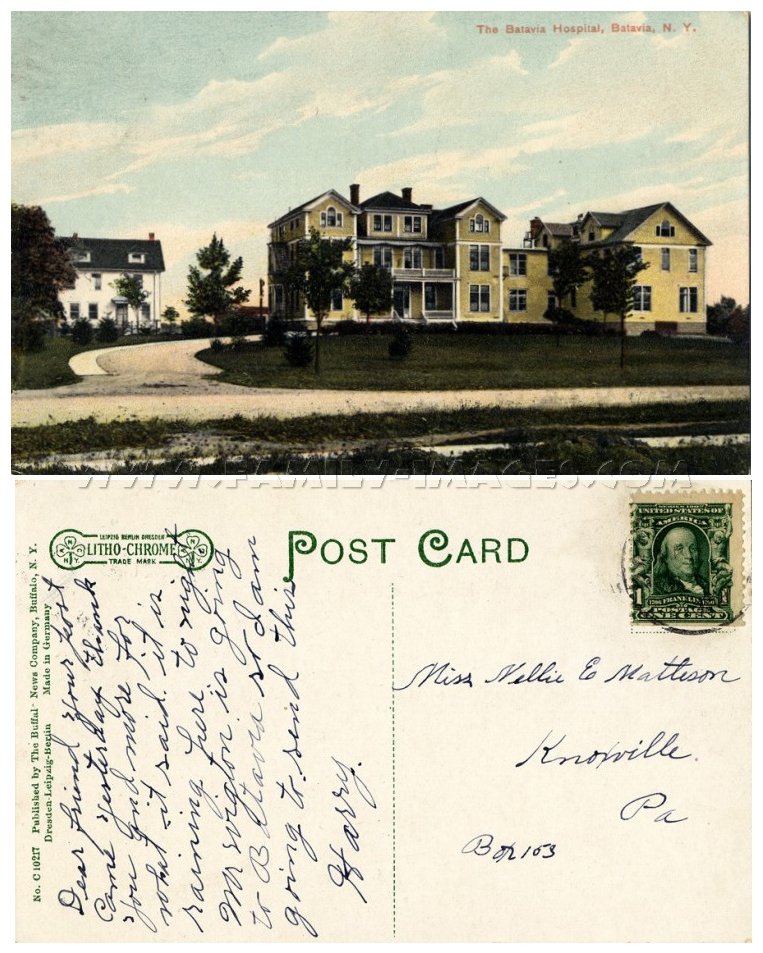 The Batavia Hospital, Batavia, N. Y.
WWW.FAMILY-IMAGES.COM
LEIPZIG BERLIN DRESDEN
LITHO-CHROME
TRADE MARK
N N
K G K G
N.Y. N.Y.
POST CARD
SERIES 1902
UNITED STATES OF
AMERICA
1 1
1706 FRANKLIN 1790
POSTAGE
ONE CENT
No. C 10217 Published by The Buffal News Company, Buffalo, N. Y.
Dresden-Leipzig-Berlin Made in Germany
Dear friend your post
Came yesterday thank
you and more for
what it said. it is
raining here to night
Mr is going
to Batavia so I am
going to send this
Harry.
Miss Nellie E Matteson
Knoxville.
Pa
Box 103